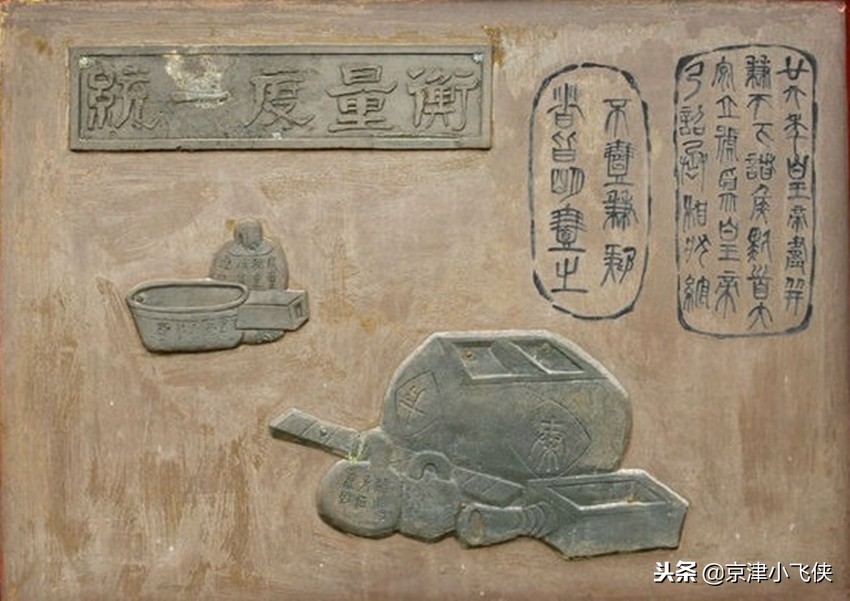 統一度量衡
廿六年皇帝盡并
兼天下諸侯黔首大
安立號為皇帝
乃詔丞相狀綰
不壹歉疑
者皆明壹之
头条 @京津小飞侠